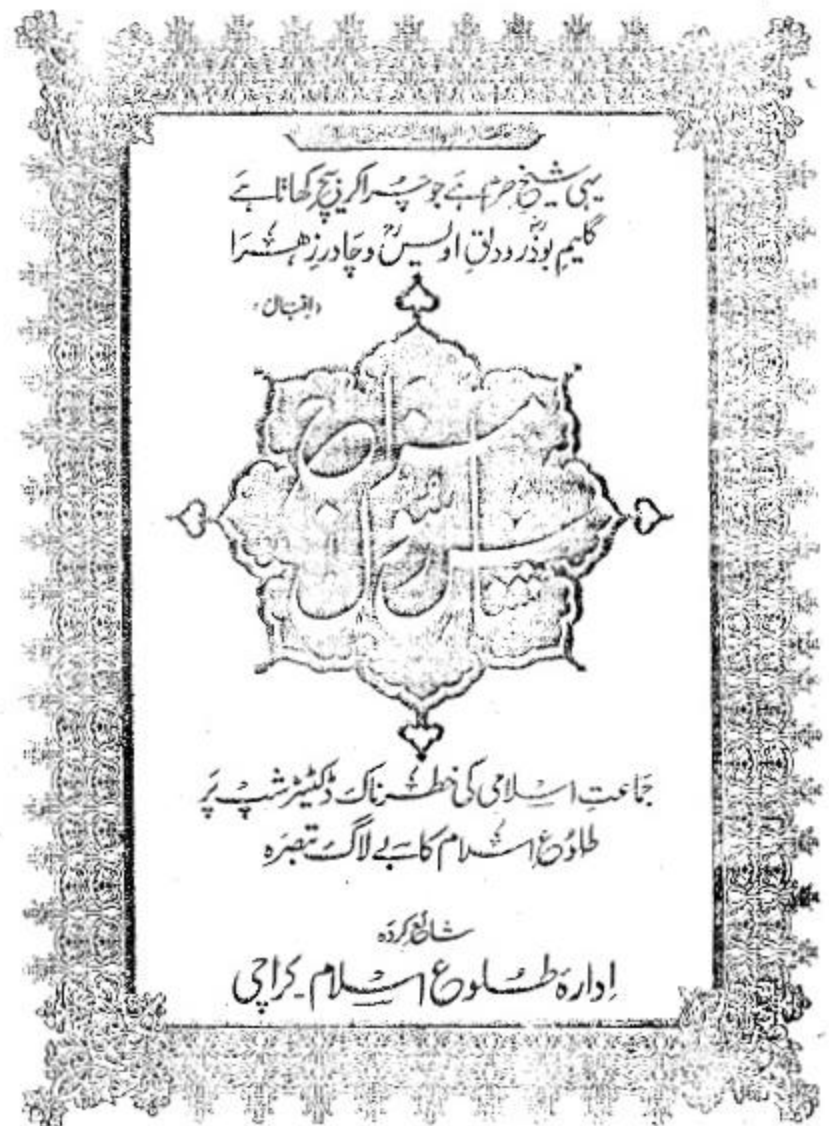 یہی شیخِ حرم ہے جو چُرا کر بیچ کھاتا ہے
گلیمِ بوذرؓ و دلقِ اویسؓ و چادرِ زہراؓ
(اقبال)
مزاج شناسِ رسولؐ
جماعتِ اسلامی کی خطرناک ڈکٹیٹرشپ پر
طلوُعِ اسلام کا بے لاگ تبصرہ
شائع کردہ
ادارہ طلوع اسلام۔ کراچی